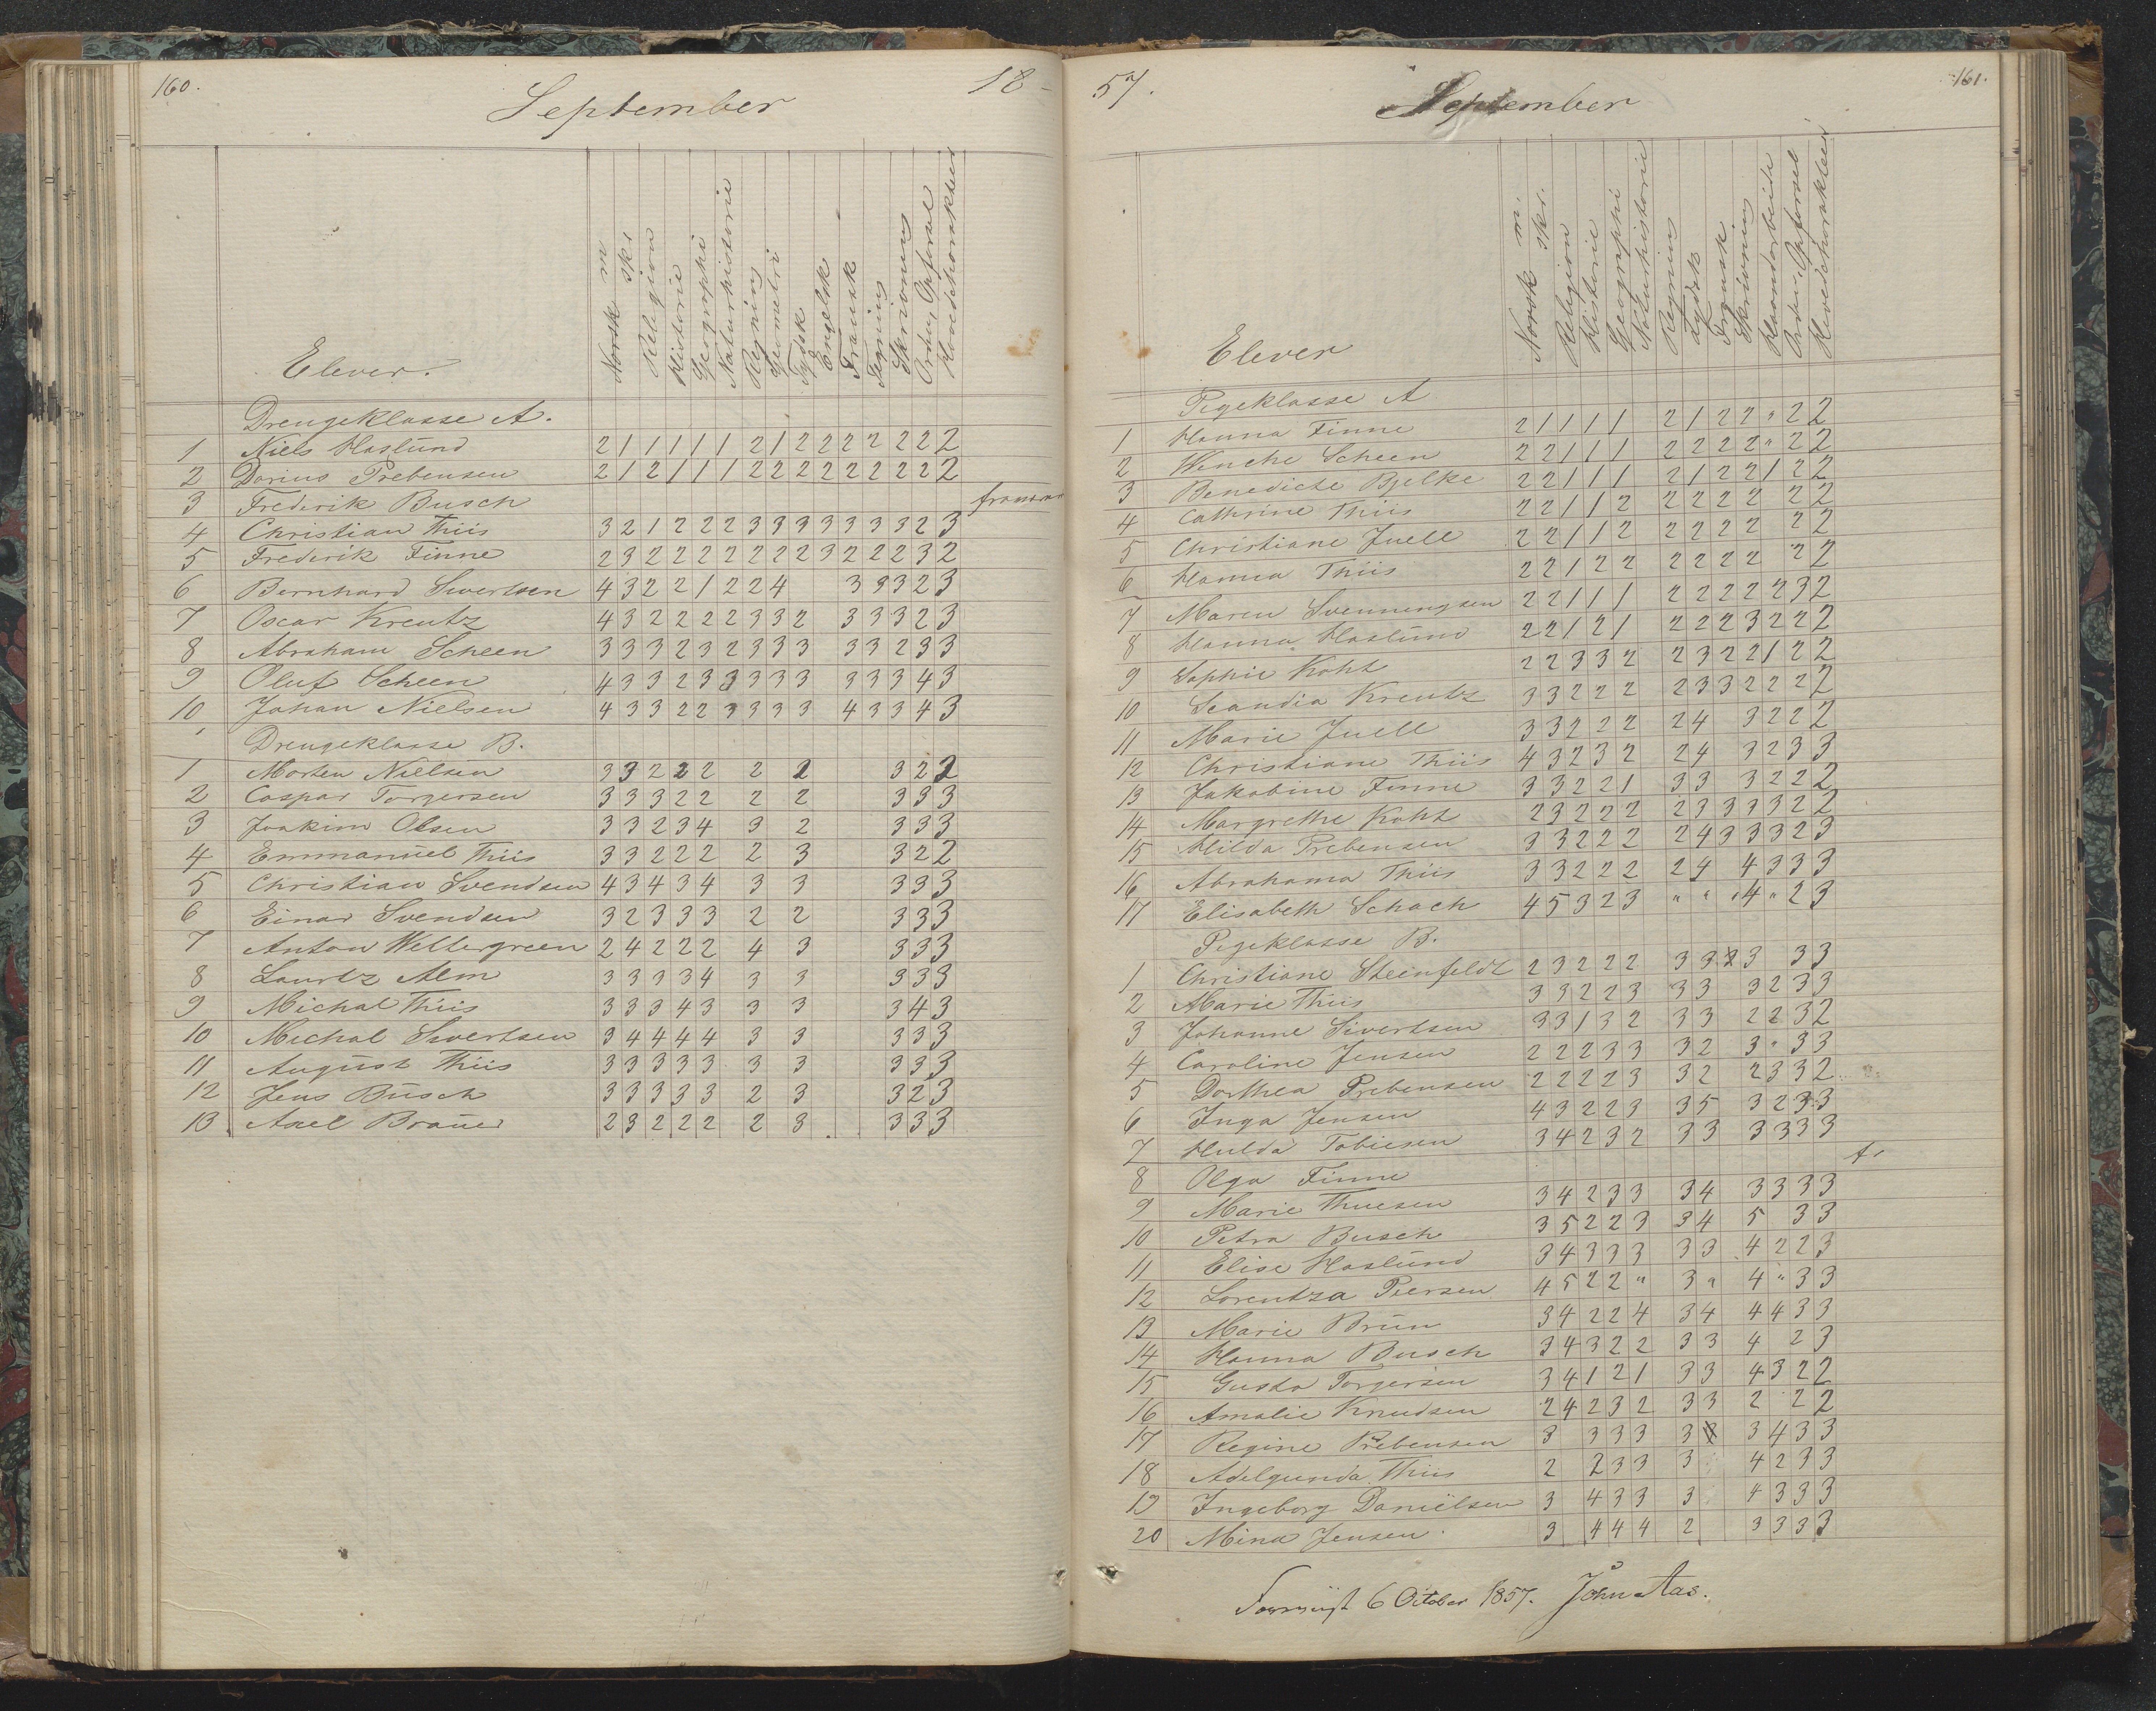 160. 18-
September
Norsk m
skr
Religion
Historie
Geographi
Naturhistorie
Regning
Geometri
Tydsk
Engelsk
Fransk
Tegning
Skrivning
Orden, Opførsel
Hovedcharakteer
Elever.
Drengeklasse A.
1 Niels Haslund 2 1 1 1 1 1 2 1 2 2 2 2 2 2 2
2 Darius Prebensen 2 1 2 1 1 1 2 2 2 2 2 2 2 2 2
3 Frederik Busch
4 Christian Thiis 3 2 1 2 2 2 3 3 3 3 3 3 3 2 3
5 Frederik Finne 2 3 2 2 2 2 2 2 2 3 2 2 2 3 2
6 Bernhard Sivertsen 4 3 2 2 1 2 2 4 3 3 3 2 3
7 Oscar Kreutz 4 3 2 2 2 2 3 3 2 3 3 3 2 3
8 Abraham Scheen 3 3 3 2 3 2 3 3 3 3 3 2 3 3
9 Oluf Scheen 4 3 3 2 3 3 3 3 3 3 3 3 4 3
10 Johan Nielsen 4 3 3 2 2 3 3 3 3 4 3 3 4 3
Drengeklasse B.
1 Morten Nielsen 3 3 2 2 2 2 2 3 2 2
2 Caspar Torgersen 3 3 3 2 2 2 2 3 3 3
3 Joakim Olsen 3 3 2 3 4 3 2 3 3 3
4 Emmanuel Thiis 3 3 2 2 2 2 3 3 2 2
5 Christian Svendsen 4 3 4 3 4 3 3 3 3 3
6 Einar Svendsen 3 2 3 3 3 2 2 3 3 3
7 Anton Wettergreen 2 4 2 2 2 4 3 3 3 3
8 Lauritz Alm 3 3 3 3 4 3 3 3 3 3
9 Michal Thiis 3 3 3 4 3 3 3 3 4 3
10 Michal Sivertsen 3 4 4 4 4 3 3 3 3 3
11 August Thiis 3 3 3 3 3 3 3 3 3 3
12 Jens Busch 3 3 3 3 3 2 3 3 2 3
13 Axel Bräuer 2 3 2 2 2 2 3 3 3 3
57. 161.
September
Norsk m.
skr.
Religion
Historie
Geographi
Naturhistorie
Regning
Tydsk
Fransk
Skrivning
Haandarbeide
Orden, Opførsel
Hovedcharakteer
Elever
Pigeklasse A
1 Hanna Finne 2 1 1 1 1 2 1 2 2 " 2 2
2 Wenche Scheen 2 2 1 1 1 2 2 2 2 " 2 2
3 Benedicte Bjelke 2 2 1 1 1 2 1 2 2 1 2 2
4 Cathrine Thiis 2 2 1 1 2 2 2 2 2 2 2
5 Christiane Juell 2 2 1 1 2 2 2 2 2 2 2
6 Hanna Thiis 2 2 1 2 2 2 2 2 2 2 2
7 Maren Svenningsen 2 2 1 1 1 2 2 2 2 2 3 2
8 Hanna Haslund 2 2 1 2 1 2 2 2 3 2 2 2
9 Sophie Koht 2 2 3 3 2 2 3 2 2 1 2 2
10 Scandia Kreutz 3 3 2 2 2 2 3 3 2 2 2 2
11 Marie Juell 3 3 2 2 2 2 4 3 2 2 2
12 Christiane Thiis 4 3 2 3 2 2 4 3 2 3 3
13 Jakobine Finne 3 3 2 2 1 3 3 3 2 2 2
14 Margrethe Koht 2 3 2 2 2 2 3 3 3 3 2 2
15 Hilda Prebensen 3 3 2 2 2 2 4 3 3 3 2 3
16 Abrahama Thiis 3 3 2 2 2 2 4 4 3 3 3
17 Elisabeth Schach 4 5 3 2 3 " " " 4 " 2 3
Pigeklasse B.
1 Christiane Steinfeldt 2 3 2 2 2 3 3 3 3 3
2 Marie Thiis 3 3 2 2 3 3 3 3 2 3 3
3 Johanne Sivertsen 3 3 1 3 2 3 3 2 2 3 2
4 Caroline Jensen 2 2 2 3 3 3 2 3 " 3 3
5 Dorthea Prebensen 2 2 2 2 3 3 2 2 3 3 2
6 Inga Jensen 4 3 2 2 3 3 5 3 2 3 3
7 Hulda Tobiesen 3 4 2 3 2 3 3 3 3 3 3
8 Olga Finne fr
9 Marie Thuesen 3 4 2 3 3 3 4 3 3 3 3
10 Petra Busch 3 5 2 2 3 3 4 5 3 3
11 Elise Haslund 3 4 3 3 3 3 3 4 2 2 3
12 Lorentza Peersen 4 5 2 2 " 3 " 4 " 3 3
13 Marie Brun 3 4 2 2 4 3 4 4 4 3 3
14 Hanna Busch 3 4 3 2 2 3 3 4 2 3
15 Gusta Torgersen 3 4 1 2 1 3 3 4 3 2 2
16 Amalie Knudsen 2 4 2 3 2 3 3 2 2 2
17 Regine Prebensen 3 3 3 3 3 3 4 3 3
18 Adelgunda Thiis 2 2 3 3 3 4 2 3 3
19 Ingeborg Daniëlsen 3 4 3 3 3 4 3 3 3
20 Mina Jensen 3 4 4 4 2 3 3 3 3
6 October 1857. John Aas.